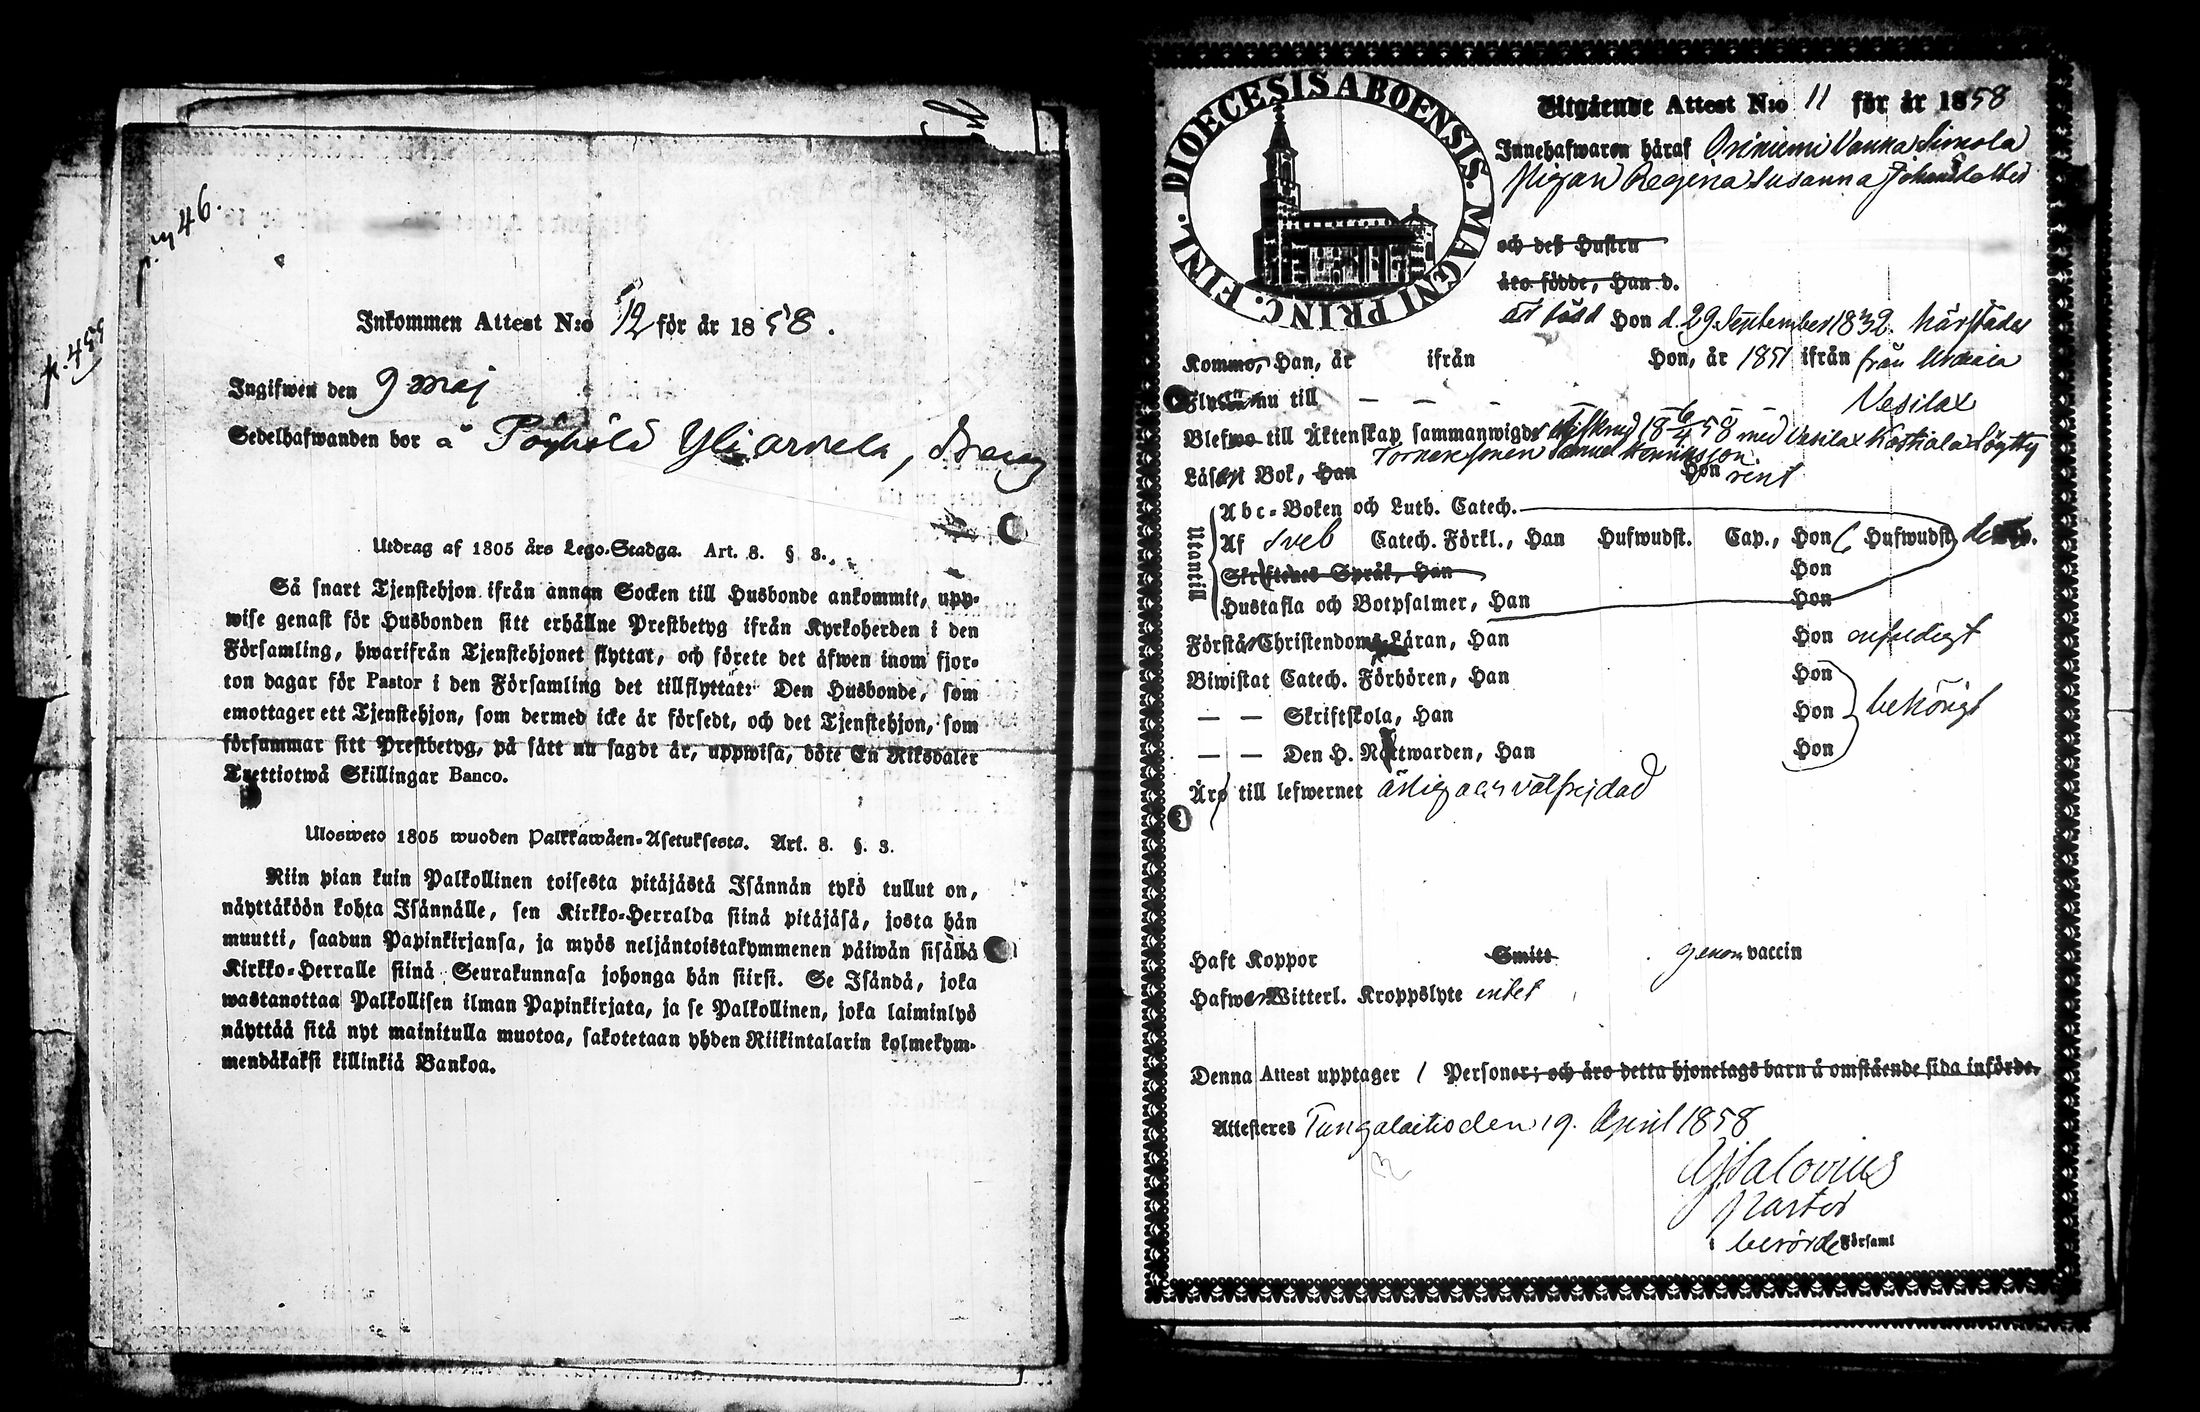 p. 46.
p. 459
Inkommen Attest N:o 12 för år 1858.
Ingifwen den 9 Maj
Sedelhafwanden bor å Pöyhölä Yli arvela,
Utdrag af 1805 års Lego-Stadga. Art. 8. § 3.
Så snart Tjenstehjon ifrån annan Socken till Husbonde ankommit, upp-
wise genast för Husbonden sitt erhållne Prestbetyg ifrån Kyrkoherden i den
Församling, hwarifrån Tjenstehjonet flyttat, och förete det äfwen inom fjor-
ton dagar för Pastor i den Församling det tillflyttat: Den Husbonde, som
emottager ett Tjenstehjon, som dermed icke är försedt, och det Tjenstehjon, som
försummar sitt Prestbetyg, på sätt nu sagdt är, uppwisa, böte En Riksdaler
Trettiotwå Skillingar Banco.
Ulosweto 1805 wuoden Palkkawäen-Asetuksesta. Art. 8. §. 3.
Niin pian kuin Palkollinen toisesta pitäjästä Isännän tykö tullut on,
näyttäköön kohta Isännälle, sen Kirkko-Herralda siinä pitäjäsä, josta hän
muutti, saadun Papinkirjansa, ja myös neljäntoistakymmenen päiwän sisällä
Kirkko-Herralle siinä Seurakunnasa johonga hän siirsi. Se Isändä, joka
wastanottaa Palkollisen ilman Papinkirjata, ja se Palkollinen, joka laiminlyö
näyttää sitä nyt mainitulla muotoa, sakotetaan yhden Riikintalarin kolmekym-
mendäkaksi killinkiä Bankoa.
DIOECESIS ABOENSIS. MAGNI PRINC. FINL.
Utgående Attest N:o 11 för år 1858
Innehafwaren häraf Oriniemi Vanha Simola
Pigan Regina Susanna Johansdotter
och deß Hustru
äro födde, Han d.
är född Hon d. 29 September 1832. härstädes
Kommo, Han, år ifrån Hon, år 1851 ifrån från Urdiala
Flyttar nu till — — — — — Vesilax
Blefwo till Äktenskap sammanwigde 18 6/4 58 med Vesilax Kostiala Pöytty
Torparesonen Samuel Henriksson
Läsa i Bok, Han Hon rent
Utantill
Abc-Boken och Luth. Catech.
Af Sveb Catech. Förkl., Han Hufwudst. Cap., Hon 6 Hufwudst.
Skriftenes Språk, Han Hon
Hustafla och Botpsalmer, Han Hon
Förstå Christendoms Läran, Han Hon enfaldigt
Biwistat Catech. Förhören, Han Hon
— — Skriftskola, Han Hon behörigt
— — Den H. Nattwarden, Han Hon
Äro till lefwernet ärlig och välfrejdad
Haft Koppor Smitt genom vaccin
Hafwa Witterl. Kroppslyte intet
Denna Attest upptager 1 Personer; och äro detta hjonelags barn å omstående sida införde.
Attesteras Tungalaitio den 19. April 1858
Salovius
Pastor
i berörde Församl